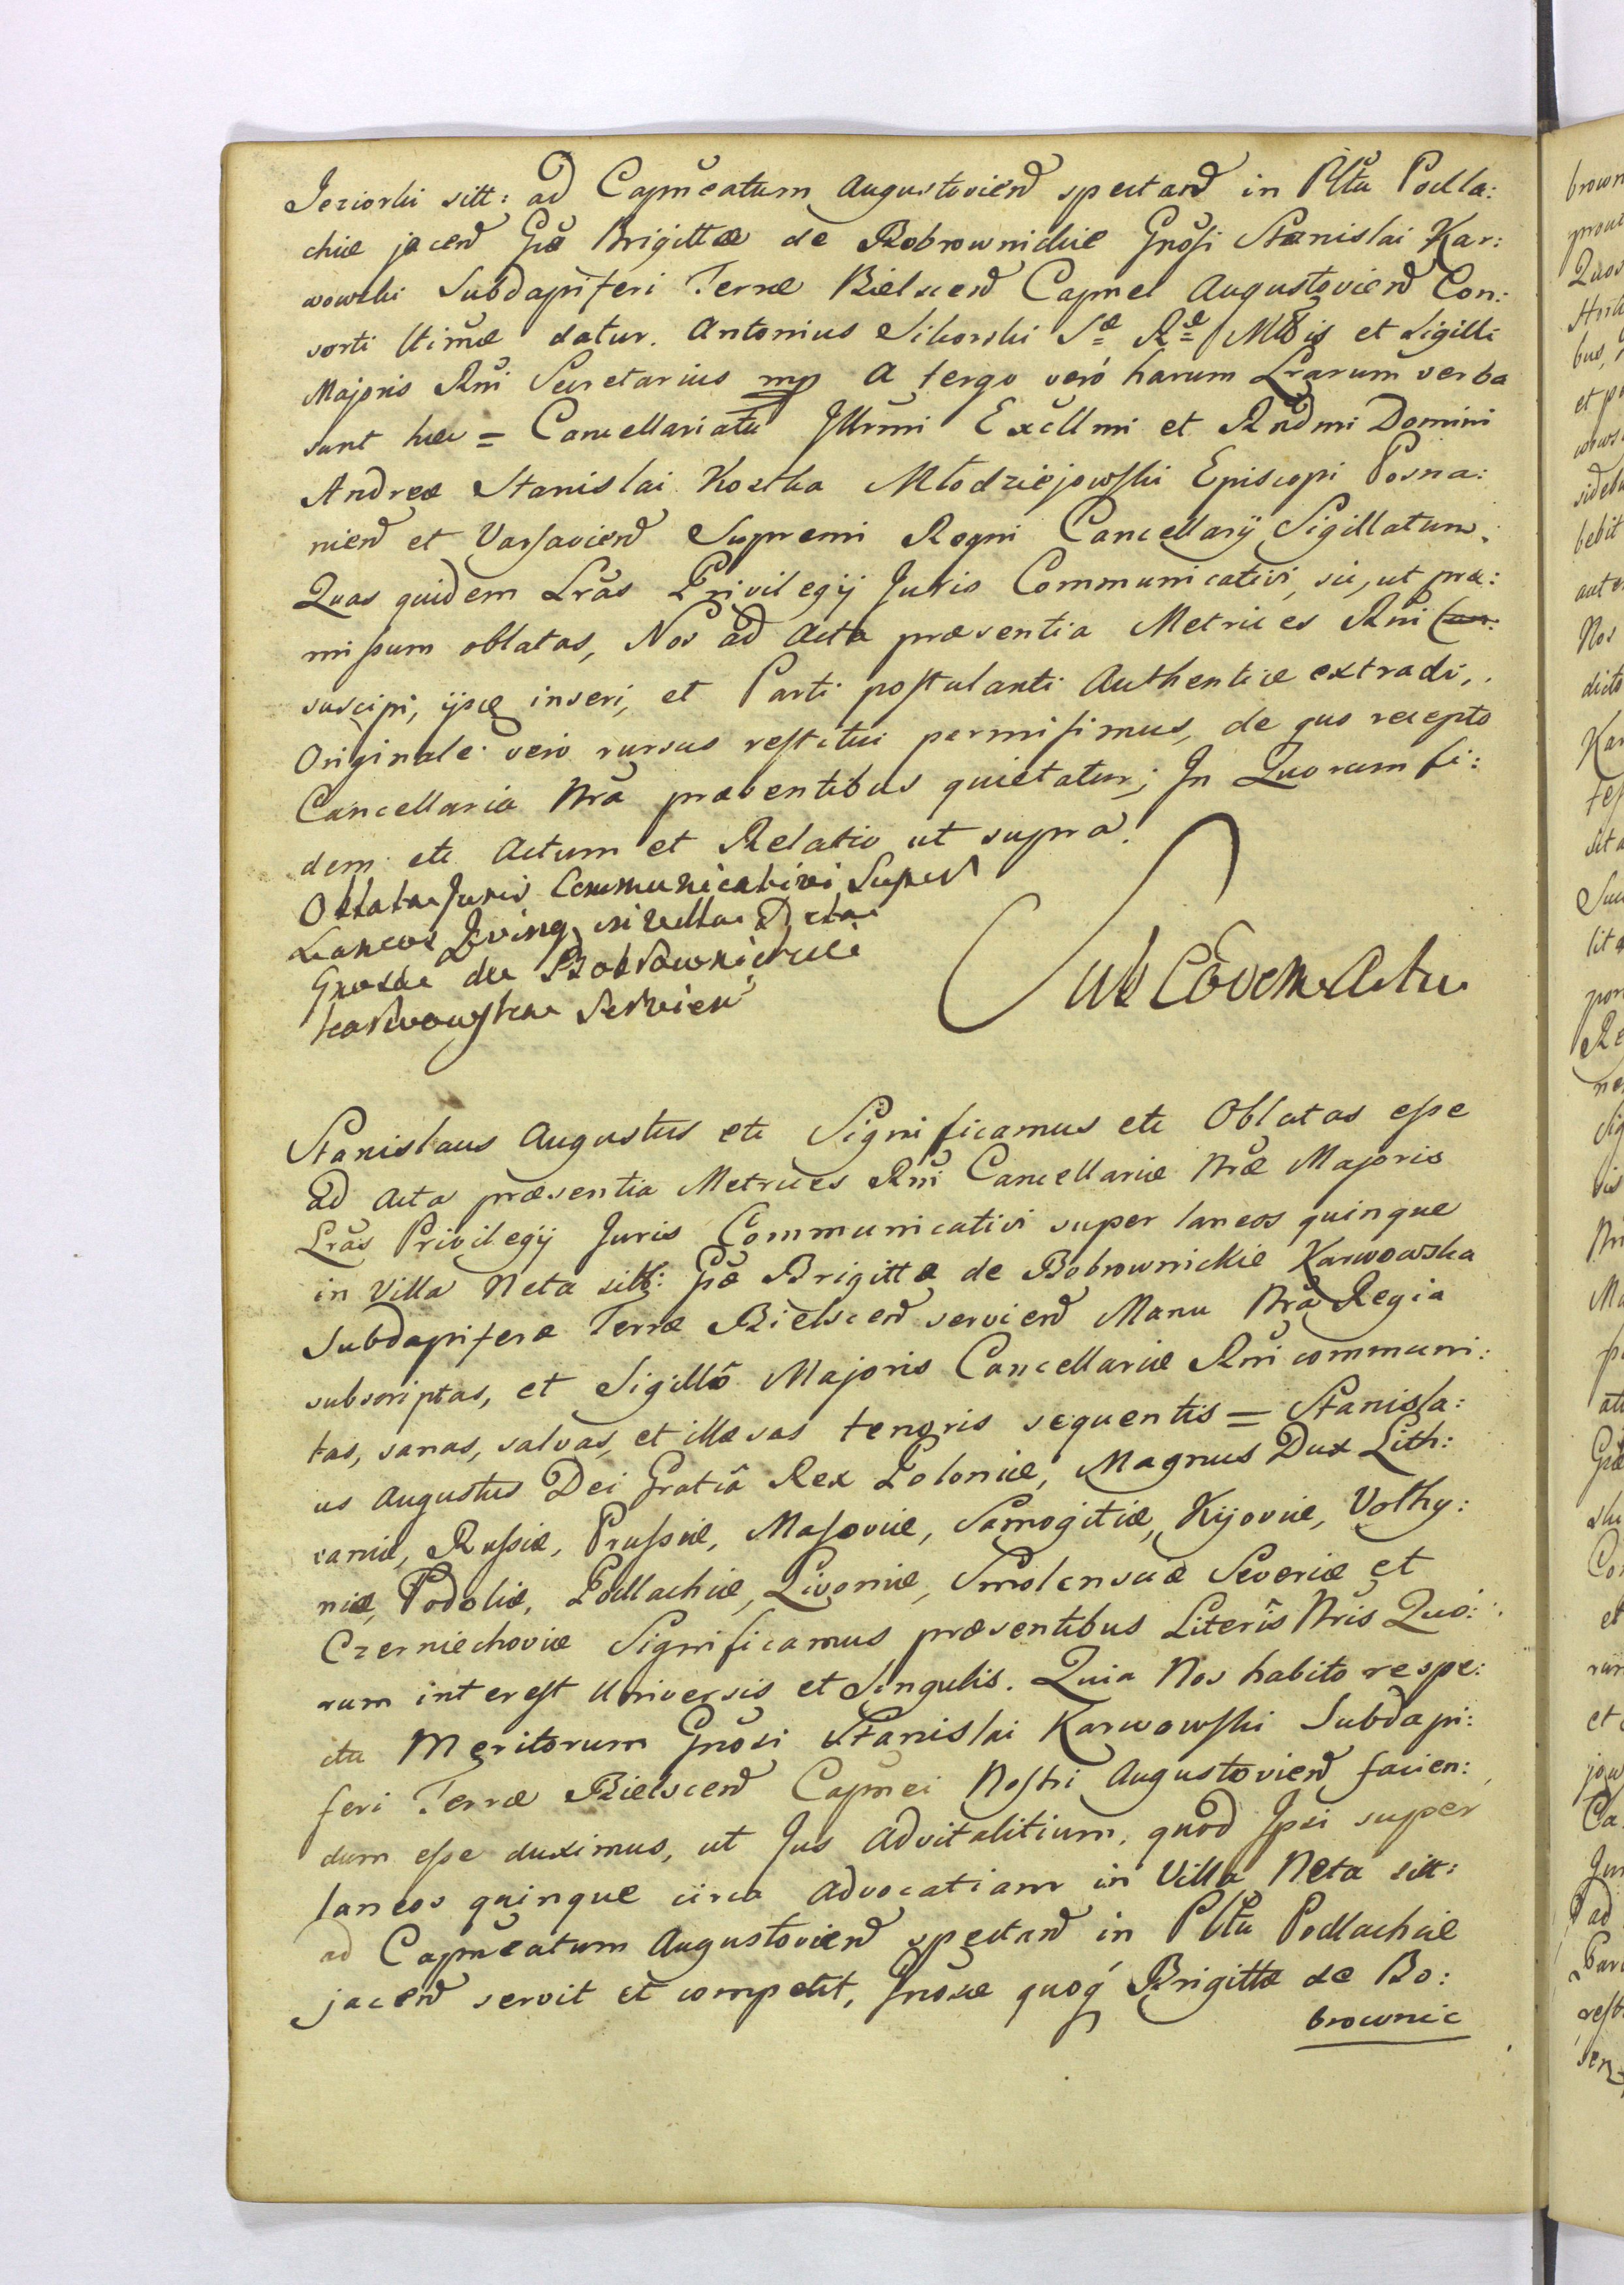 Jeziorki sitt: ad Capnẽatum Augustovieñ spectañ in Pltũ Podla:
chiæ jaceñ Gñæ Brigittæ de Bobrownickie Gnõsi Stanislai Kar:
wowski Subdapiferi Terræ Bielsceñ Capnei Augustovieñ Con:
sorti ltimæ datur. Antonius Sikorski Sæ Ræ Mttis et Sigilli
Majoris Rni Secretarius mp A tergo verò harum Lrarum verba
sunt hæc = Cancellariatu Jllrmi Excllmi et Rndmi Domini
Andreæ Stanislai Kostka Młodziejowski Episcopi Posna:
nieñ et Varsavieñ Supremi Regni Cancellarij Sigillatum.
Quas quidem Lrãs Privilegij Juris Communicativi, sic, ut præ:
missum oblatas, Nos ad Acta præsentia Metrices Rni
suscipi, ijsq inseri, et Parti postulanti Authentice extradi,
Originale verò rursus restitui permisimus, de quo recepto
Cancellaria Nrã præsentibus quietatur; Jn Quorum fi:
dem etc Actum et Relatio ut supra.
Oblata Juris Communicativi Super
Laneos Quinq in villa Neta
Gnosæ de Bobrownickie
Karwowska Servieñ
Sub Eodem Actu
Stanislaus Augustus etc Significamus etc Oblatas esse
ad Acta præsentia Metrices Rni Cancellariæ Nræ Majoris
Lrãs Privilegij Juris Communicativi super laneos quinque
in Villa Neta sitt: Gñæ Brigittæ de Bobrownickie Karwowska
Subdapiferæ Terræ Bielsceñ servieñ Manu Nrã Regia
subscriptas, et Sigillô Majoris Cancellariæ Rni communi:
tas, sanas, salvas, et illæsas tenoris sequentis = Stanisla:
us Augustus Dei Gratiâ Rex Poloniæ, Magnus Dux Lith:
vaniæ, Russiæ, Prussiæ, Masoviæ, Samogitiæ, Kijoviæ, Volhy:
niæ, Podoliæ, Podlachiæ, Livoniæ, Smolensciæ Severiæ et
Czerniechoviæ Significamus præsentibus Literis Nris Quo:
rum interest Universis et Singulis. Quia Nos habito respe:
ctu Meritorum Gnõsi Stanislai Karwowski Subdapi:
feri Terræ Bielsceñ Capnei Nostri Augustovieñ facien:
dum esse duximus, ut Jus Advitalitium, quod Jpsi super
laneos quinque circa Advocatiam in Villa Neta sitt:
ad Capnẽatum Augustovieñ spectañ in Pltũ Podlachiæ
jaceñ servit et competit, Gnosæ quoq Brigittæ de Bo:
brownic